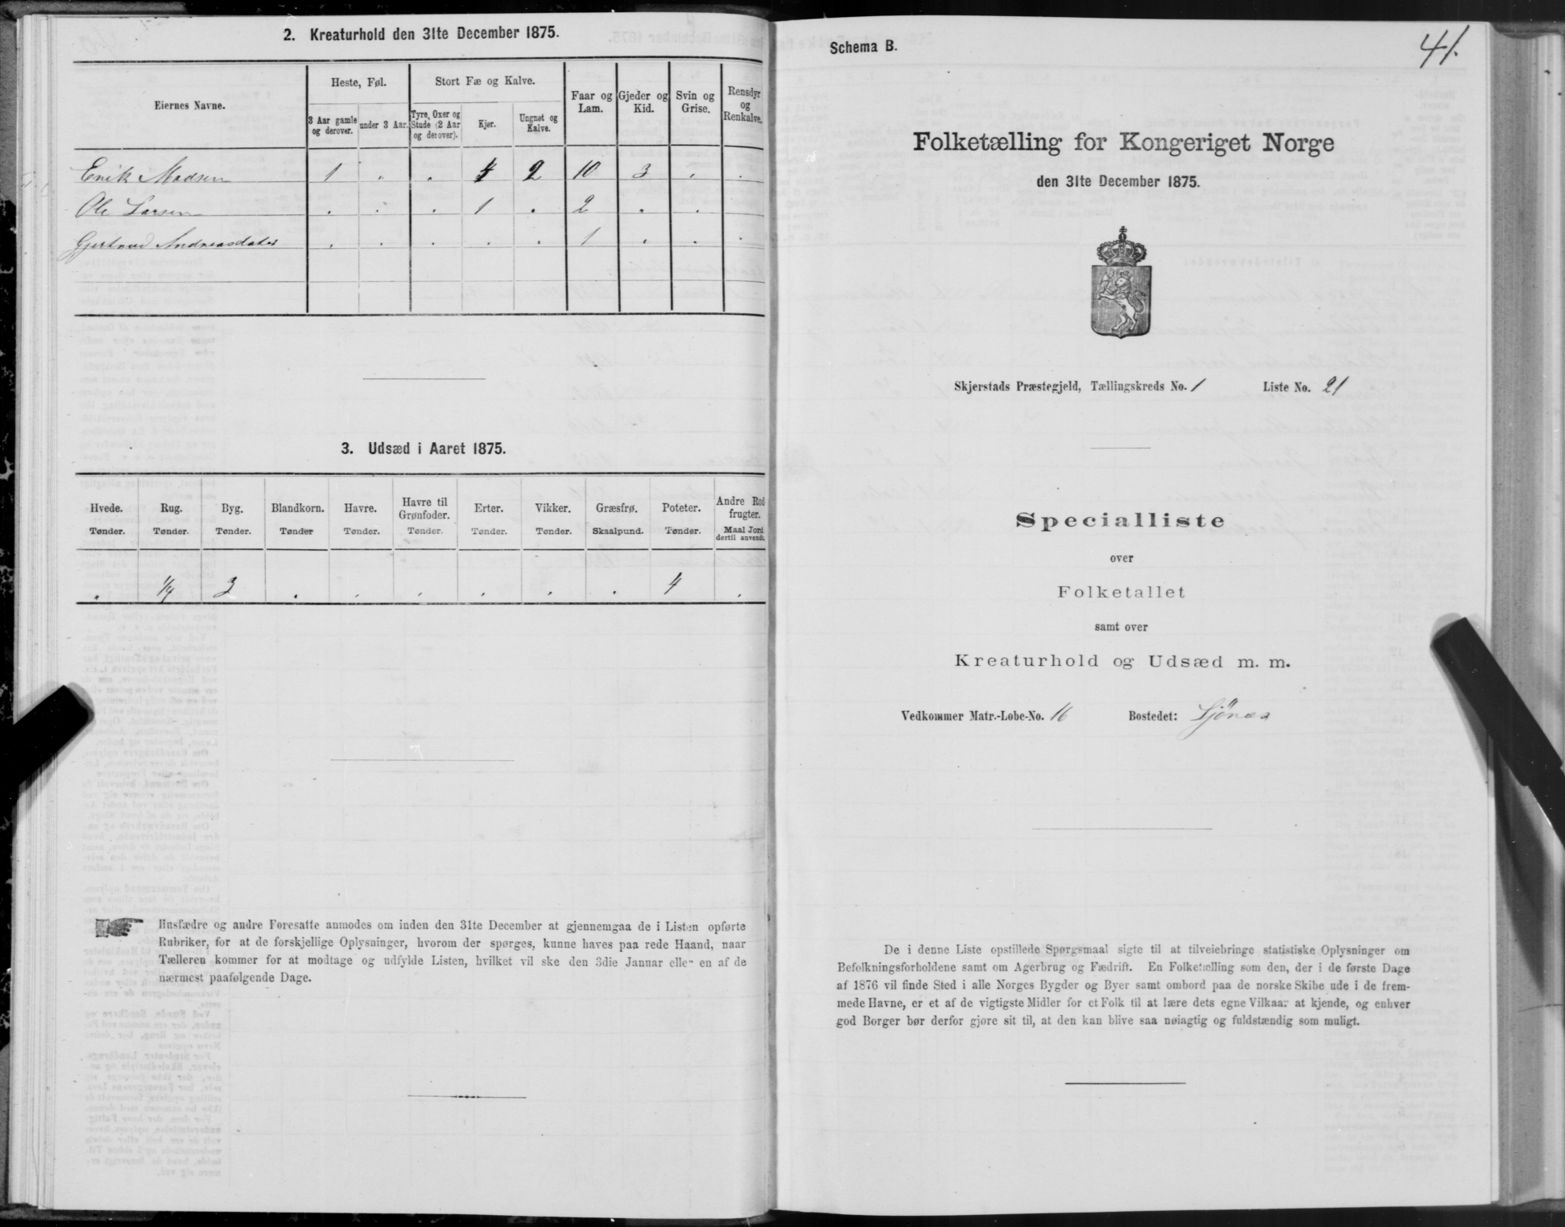 2. Kreaturhold den 31te December 1875.
Eiernes Navne.
Heste, Føl.
Stort Fæ og Kalve.
Faar og Lam.
Gjeder og Kid.
Svin og Grise.
Rensdyr og Renkalve.
3 Aar gamle og derover.
under 3 Aar.
Tyre, Oxer og Stude (2 Aar og derover).
Kjer.
Ungnet og Kalve.
Erik Madsen 1 . . 4 2 10 3 . .
Ole Larsen . . . 1 . 2 . . .
Gjertrud Andreasdater . . . . . 1 . . .
3. Udsæd i Aaret 1875.
Hvede. Rug. Byg. Blandkorn. Havre. Havre til Grønfoder. Erter. Vikker. Græsfrø. Poteter. Andre Rodfrugter.
Tønder. Tønder. Tønder. Tønder Tønder. Tønder. Tønder. Tønder. Skaalpund. Tønder. Maal Jord dertil anvendt.
. 1/4 3 . . . . . . 4 .
Husfædre og andre Foresatte anmodes om inden den 31te December at gjennemgaa de i Listen opførte
Rubriker, for at de forskjellige Oplysninger, hvorom der spørges, kunne haves paa rede Haand, naar
Tælleren kommer for at modtage og udfylde Listen, hvilket vil ske den 3die Januar eller en af de
nærmest paafølgende Dage.
Schema B.
41.
Folketælling for Kongeriget Norge
den 31te December 1875.
Skjerstads Præstegjeld, Tællingskreds No. 1 Liste No. 21
Specialliste
over
Folketallet
samt over
Kreaturhold og Udsæd m. m.
Vedkommer Matr.-Løbe-No. 16 Bostedet: Sjönes
De i denne Liste opstillede Spørgsmaal sigte til at tilveiebringe statistiske Oplysninger om
Befolkningsforholdene samt om Agerbrug og Fædrift. En Folketælling som den, der i de første Dage
af 1876 vil finde Sted i alle Norges Bygder og Byer samt ombord paa de norske Skibe ude i de frem-
mede Havne, er et af de vigtigste Midler for et Folk til at lære dets egne Vilkaar at kjende, og enhver
god Borger bør derfor gjøre sit til, at den kan blive saa nøiagtig og fuldstændig som muligt.